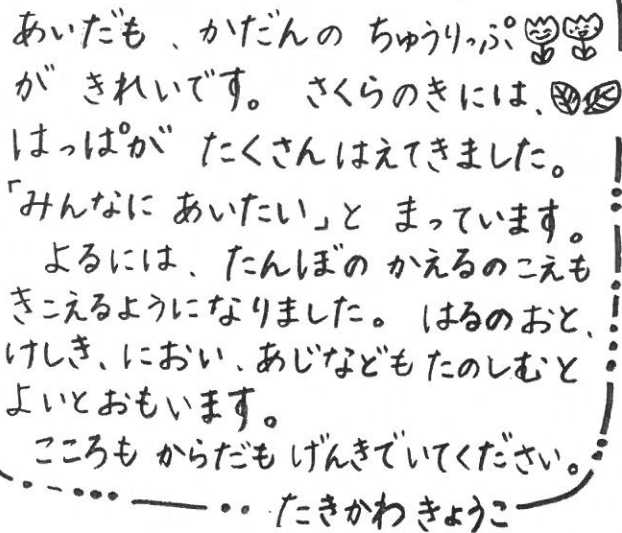 あいだも、かだんの ちゅうりっぷ
が きれいです。 さくらのきには、
はっぱが たくさんはえてきました。
「みんなに あいたい」と まっています。
よるには、たんぼの かえるのこえも
きこえるようになりました。 はるのおと、
けしき、におい、あじなども たのしむと
よいとおもいます。
こころも からだも げんきでいてください。
たきかわ きょうこ